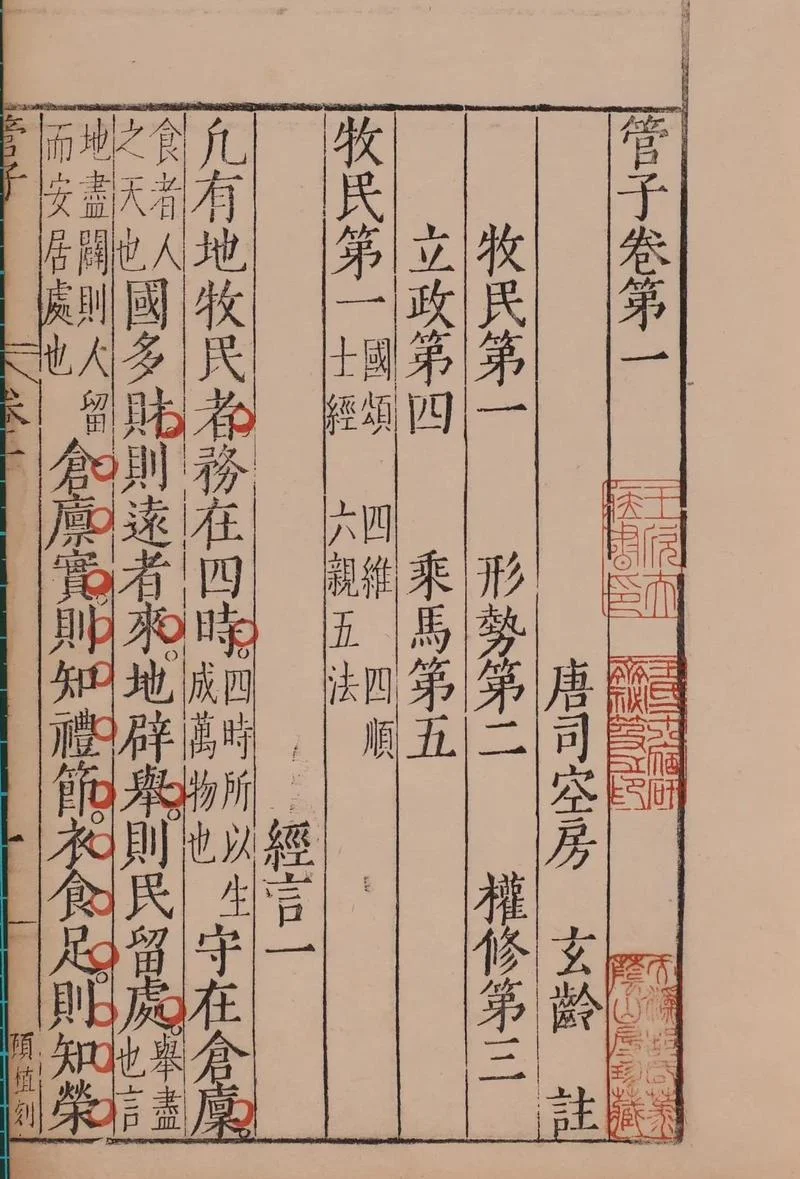 管子卷第一
唐司空房 玄齡 註
牧民第一 形勢第二 權修第三
立政第四 乘馬第五
牧民第一 國頌 四維 四順 士經 六親五法
經言一
凡有地牧民者務在四時。四時所以生成萬物也守在倉廩。
食者人之天也國多財則遠者來。地辟舉。則民留處。舉盡也言
地盡闢則人留而安居處也倉廩實則知禮節。衣食足。則知榮
管子 卷一 一 顧植刻